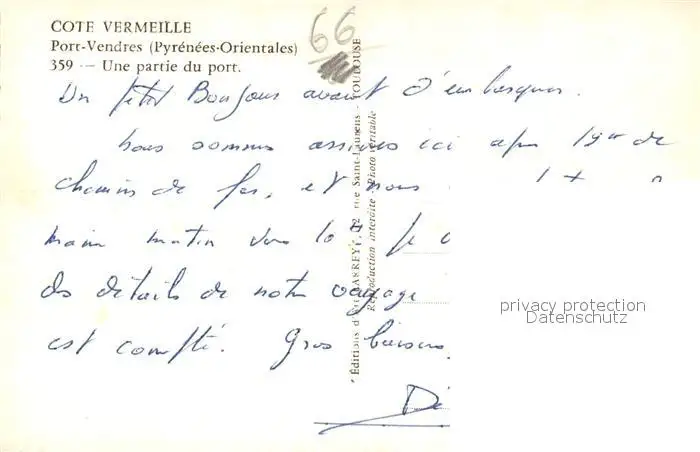 COTE VERMEILLE
Port-Vendres (Pyrénées-Orientales)
359 — Une partie du port.
66
Un petit Bonjour avant d'embarquer.
Nous sommes arrivés ici après de
chemin de fer, et nous
main matin vers 10 H je
des détails de notre voyage
est compté. Gros baisers.
Editions d'Art rue Saint-Laurens - TOULOUSE
Reproduction interdite Photo véritable
privacy protection
Datenschutz